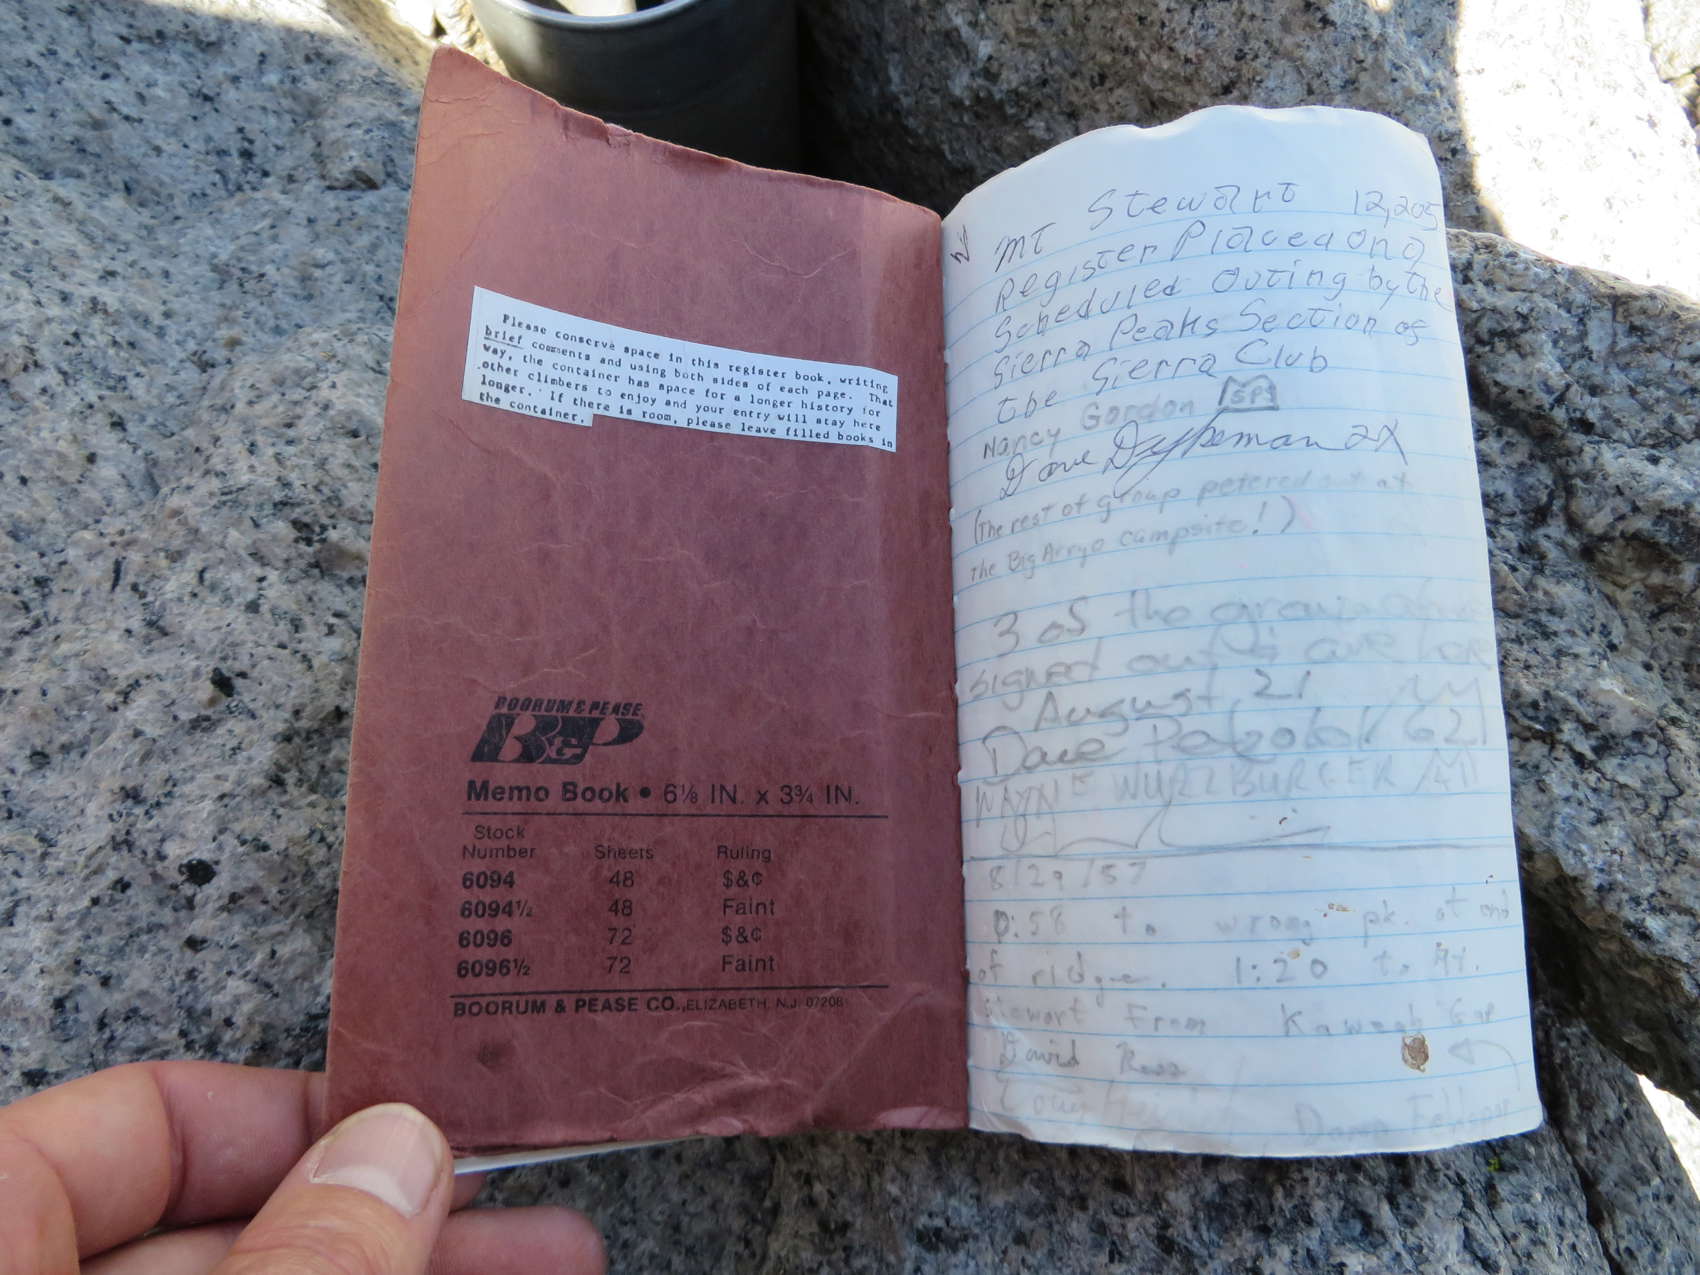 Please conserve space in this register book, writing
brief comments and using both sides of each page. That
way, the container has space for a longer history for
other climbers to enjoy and your entry will stay here
longer. If there is room, please leave filled books in
the container.
BOORUM & PEASE
B&P
Memo Book • 6⅛ IN. x 3¾ IN.
Stock
Number Sheets Ruling
6094 48 $&¢
6094½ 48 Faint
6096 72 $&¢
6096½ 72 Faint
BOORUM & PEASE CO., ELIZABETH, N.J. 07208
MT Stewart 12,205
Register Placed on a
Scheduled Outing by the
Sierra Peaks Section of
the Sierra Club
Nancy Gordon SPS
Dave Dykeman 2X
(The rest of group petered out at
the Big Arryo campsite!)
3 of the
signed out
August 21
Dave
WAYNE WURZBURGER
8/29/57
:58 to wrong pk. at end
of ridge. 1:20 to Mt.
Stewart From Kaweah Gap
David Ross